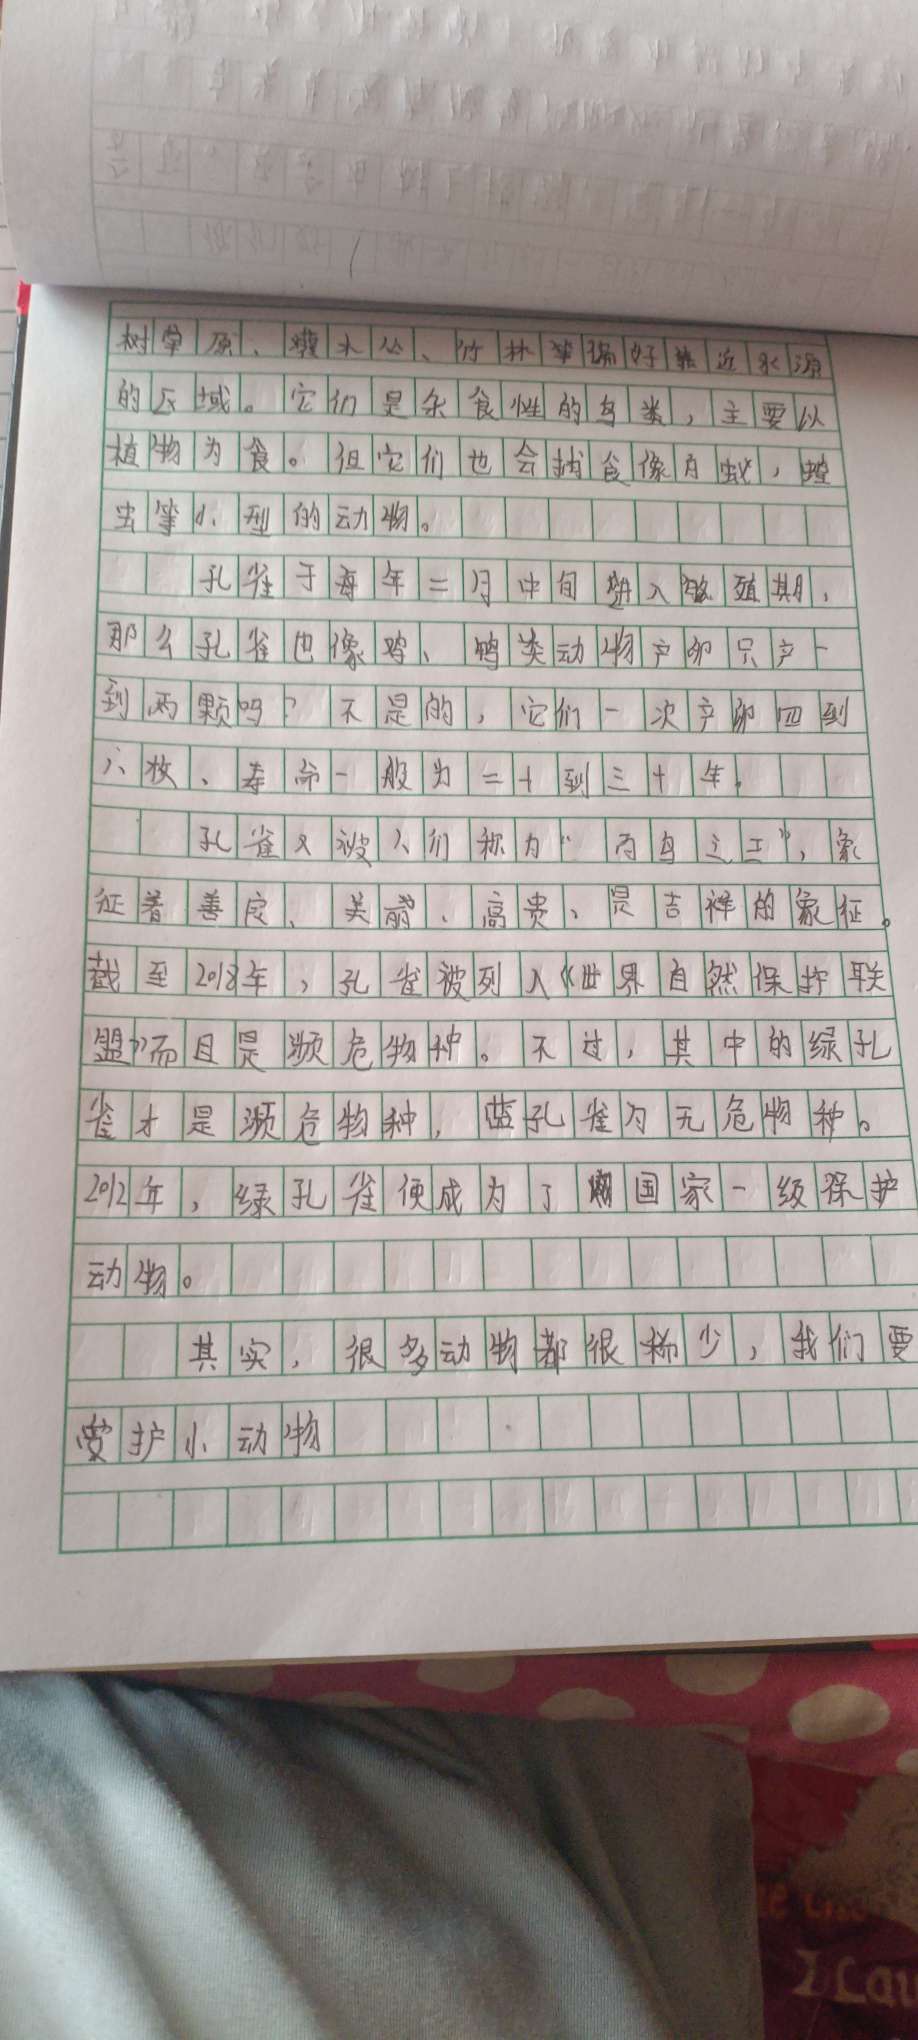 树草原、灌木丛、竹林等偏好靠近水源
的区域。它们是杂食性的鸟类，主要以
植物为食。但它们也会捕食像白蚁，蝗
虫等小型的动物。
孔雀于每年二月中旬进入繁殖期，
那么孔雀也像鸡、鸭类动物产卵只产一
到两颗吗？不是的，它们一次产卵四到
六枚、寿命一般为二十到三十年。
孔雀又被人们称为“百鸟之王”，象
征着善良、美丽、高贵、是吉祥的象征。
截至2018年，孔雀被列入《世界自然保护联
盟》而且是濒危物种。不过，其中的绿孔
雀才是濒危物种，蓝孔雀为无危物种。
2012年，绿孔雀便成为了国家一级保护
动物。
其实，很多动物都很稀少，我们要
爱护小动物